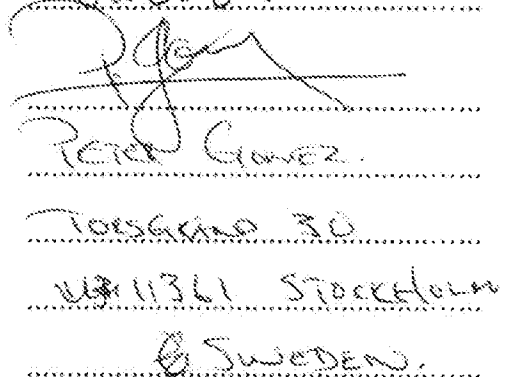 PETER GOMEZ.
TORSGRAND 30
11361 STOCKHOLM
SWEDEN.